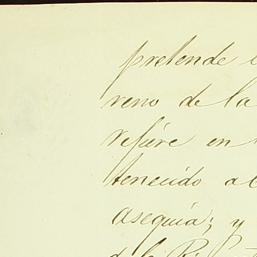 pretende
reno de la
refiere en
tenecido al
asequia; y
de la